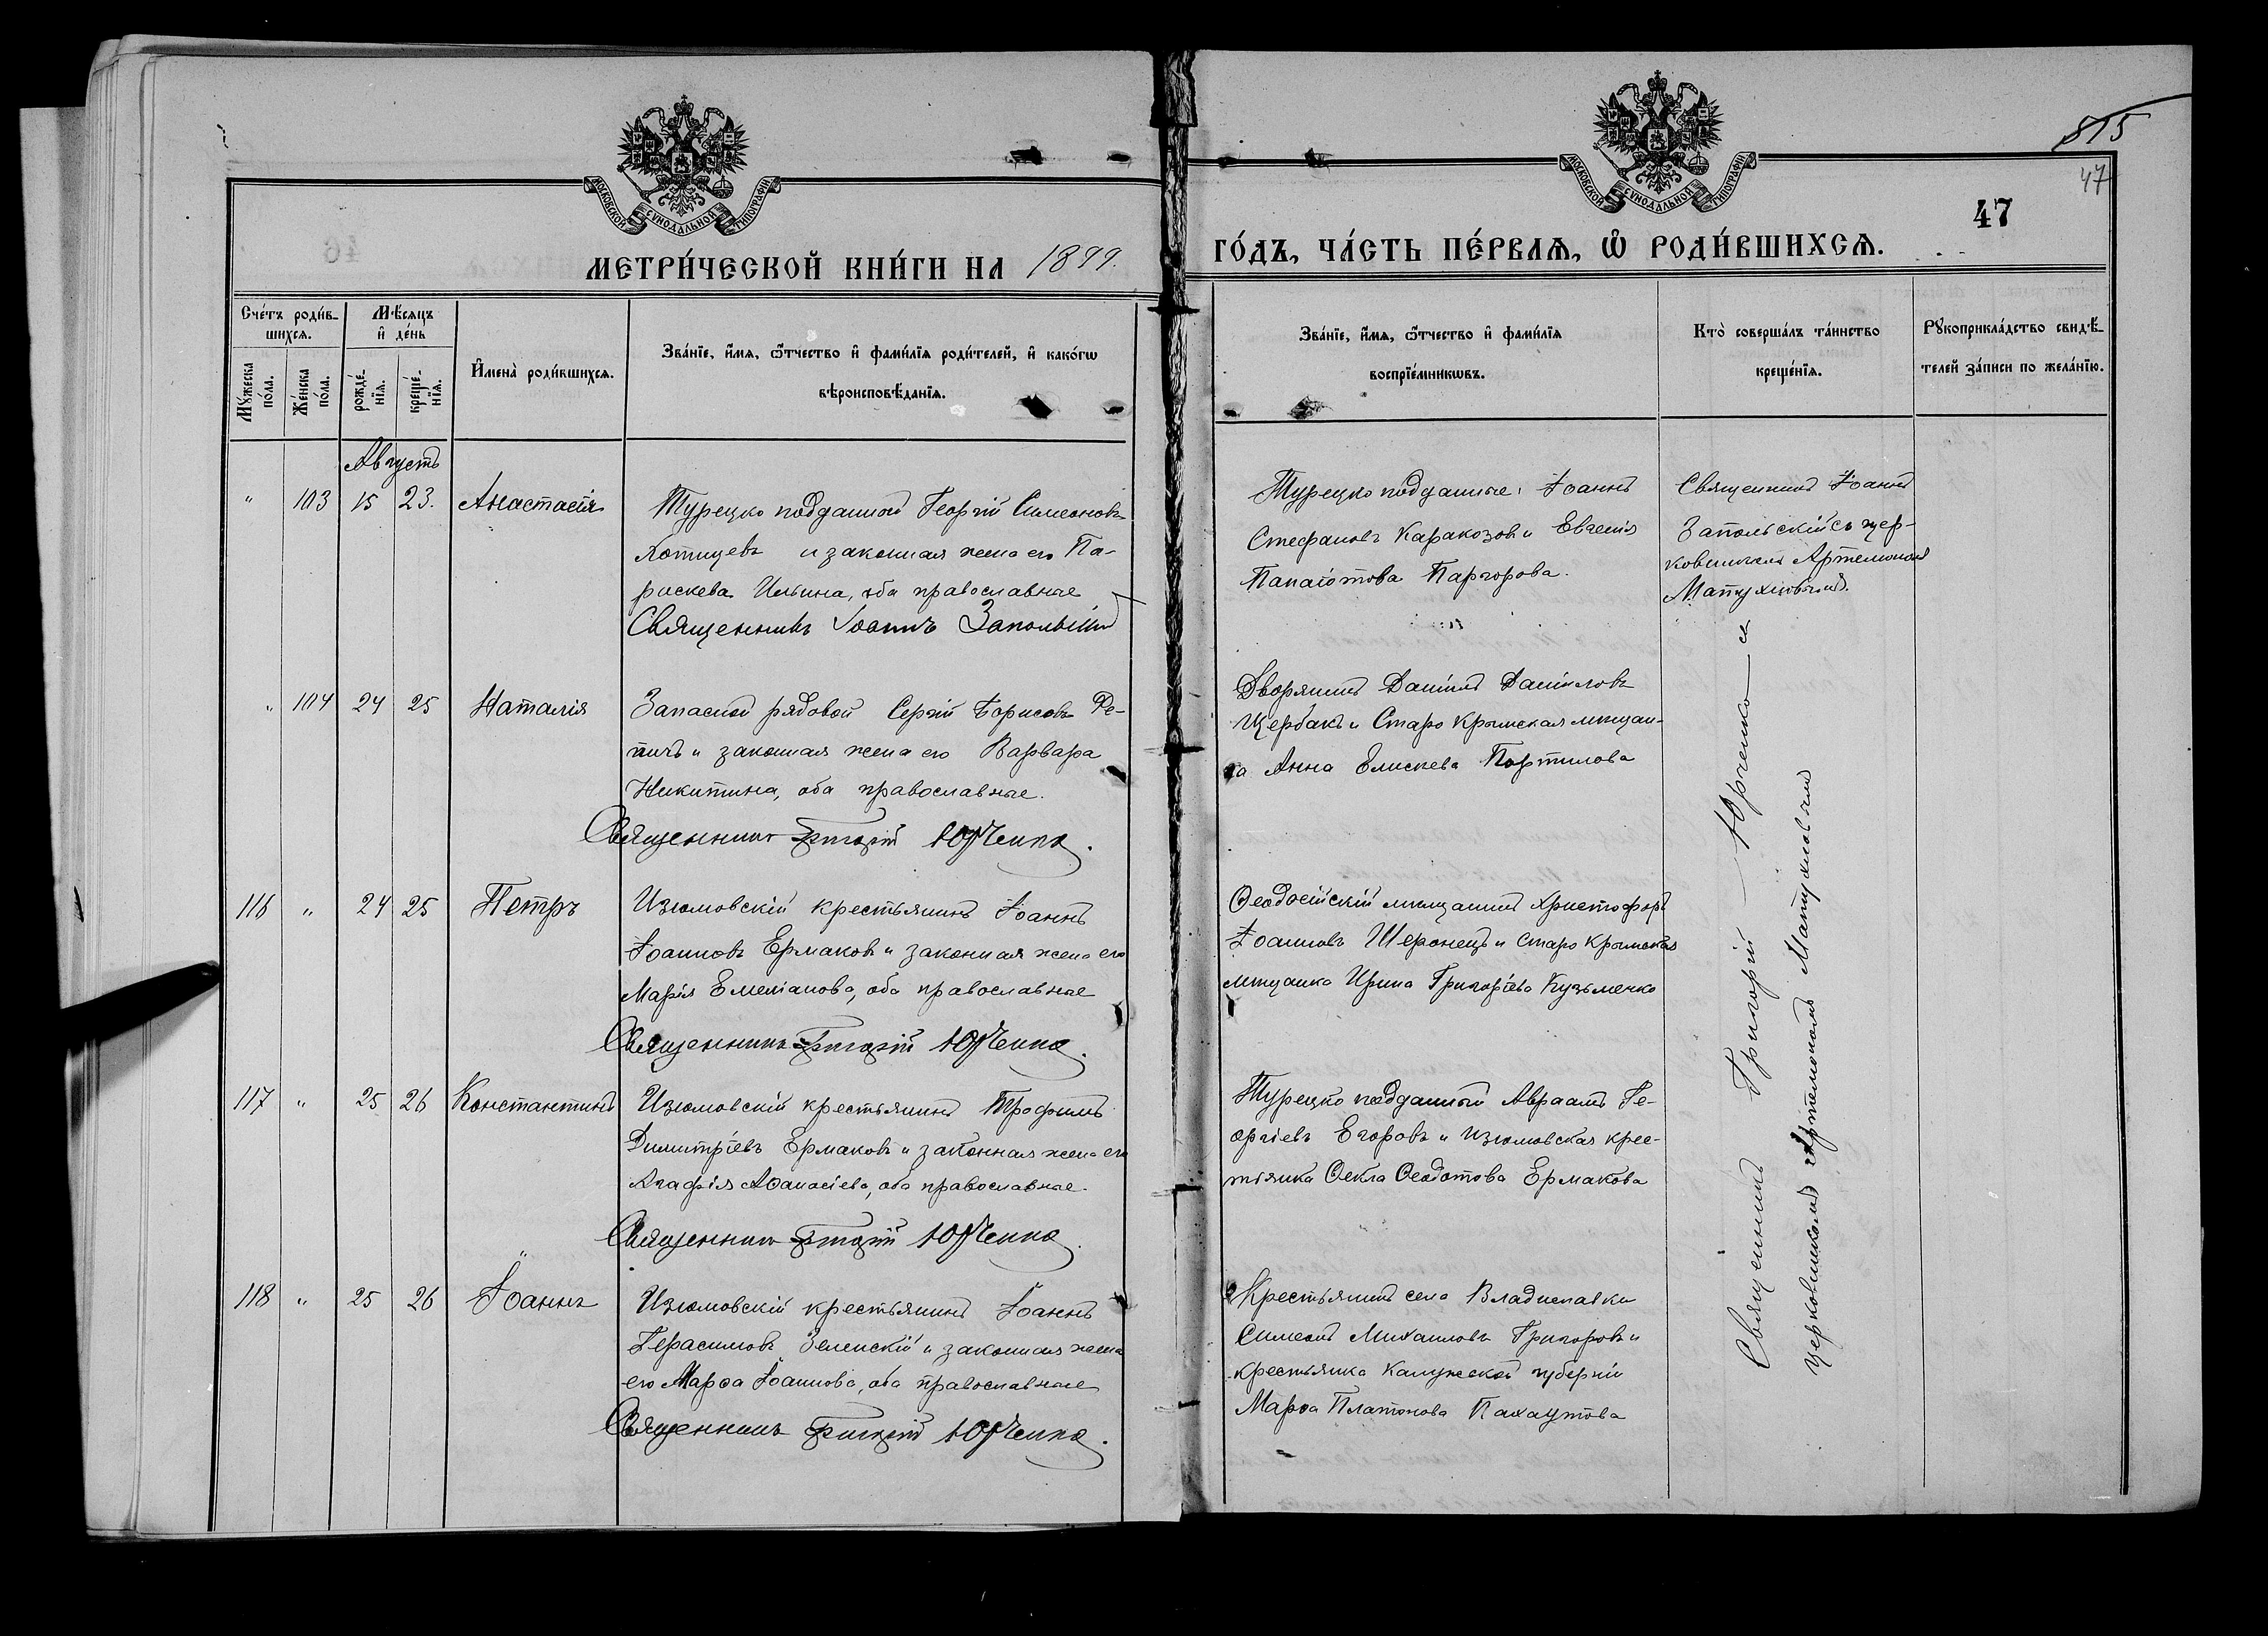 515
47
47
МОСКОВСКОЙ СѴНОДАЛЬНОЙ ТИПОГРАФІИ
МОСКОВСКОЙ СѴНОДАЛЬНОЙ ТИПОГРАФІИ
МЕТРИ́ЧЕСКОЙ КНИ́ГИ НА 1899.
ГО́ДЪ, ЧА́СТЬ ПЕ́РВАѦ, Ѡ҆ РОДИ́ВШИХСѦ.
Сче́тъ роди́в-
шихсѧ.
Мꙋ́жеска по́ла.
Же́нска по́ла.
Мѣ́сѧцъ
и҆ де́нь
рожде́-
нїѧ.
креще́-
нїѧ.
И҆мена̀ роди́вшихсѧ.
Зва́нїе, и҆́мѧ, ѻ҆́тчество и҆ фами́лїѧ роди́телей, и҆ како́гѡ
вѣроисповѣ́данїѧ.
Зва́нїе, и҆́мѧ, ѻ҆́тчество и҆ фами́лїѧ
воспрїе́мникѡвъ.
Кто̀ соверша́лъ та́инство
креще́нїѧ.
Рꙋкоприкла́дство свидѣ́-
телей за́писи по жела́нїю.
Августъ
" 103 15 23. Анастасія
Турецко подданный Георгій Симеоновъ
Котицевъ и законная жена его Па-
раскева Ильина, оба православные
Священникъ Іоаннъ Запольскій
Турецко подданные: Іоаннъ
Стефановъ Каракозов и Евгенія
Панаіотова Паргорова.
Священникъ Іоаннъ
Запольскій съ цер-
ковникомъ Артемономъ
" 104 24 25 Наталія
Запасной рядовой Сергій Борисовъ Ре-
и законная жена его Варвара
Никитина, оба православные.
Священникъ Григорій Юрченко.
Дворянинъ Даніилъ Даніиловъ
Щербакъ и Старо Крымская мещан-
ка Анна Елисеева Портилова
116 " 24 25 Петръ
Изюмовскій крестьянинъ Іоаннъ
Іоанновъ Ермаковъ и законная жена его
Марія Емеліанова, оба православные
Священникъ Григорій Юрченко.
Ѳеодосійскій мещанинъ Христофоръ
Іоанновъ Шеронецъ и Старо Крымская
мещанка Ирина Григоріева Кузьменко
117 " 25 26 Константинъ
Изюмовскій крестьянинъ Трофимъ
Димитріевъ Ермаковъ и законная жена его
Агафія Аѳанасіева, оба православные.
Священникъ Григорій Юрченко.
Турецко подданный Авраамъ Ге-
оргіевъ Егоровъ и Изюмовская крес-
тьянка Ѳекла Ѳеодотова Ермакова
118 " 25 26 Іоаннъ
Изюмовскій крестьянинъ Іоаннъ
Герасимовъ Зеленскій и законная жена
его Марѳа Іоаннова, оба православные
Священникъ Григорій Юрченко.
Крестьянинъ села Владиславки
Симеонъ Михаиловъ Григоровъ и
крестьянка Калужской губерніи
Марѳа Платонова Пахаутова
Священникъ Григорій Юрченко съ
церковникомъ Артемономъ